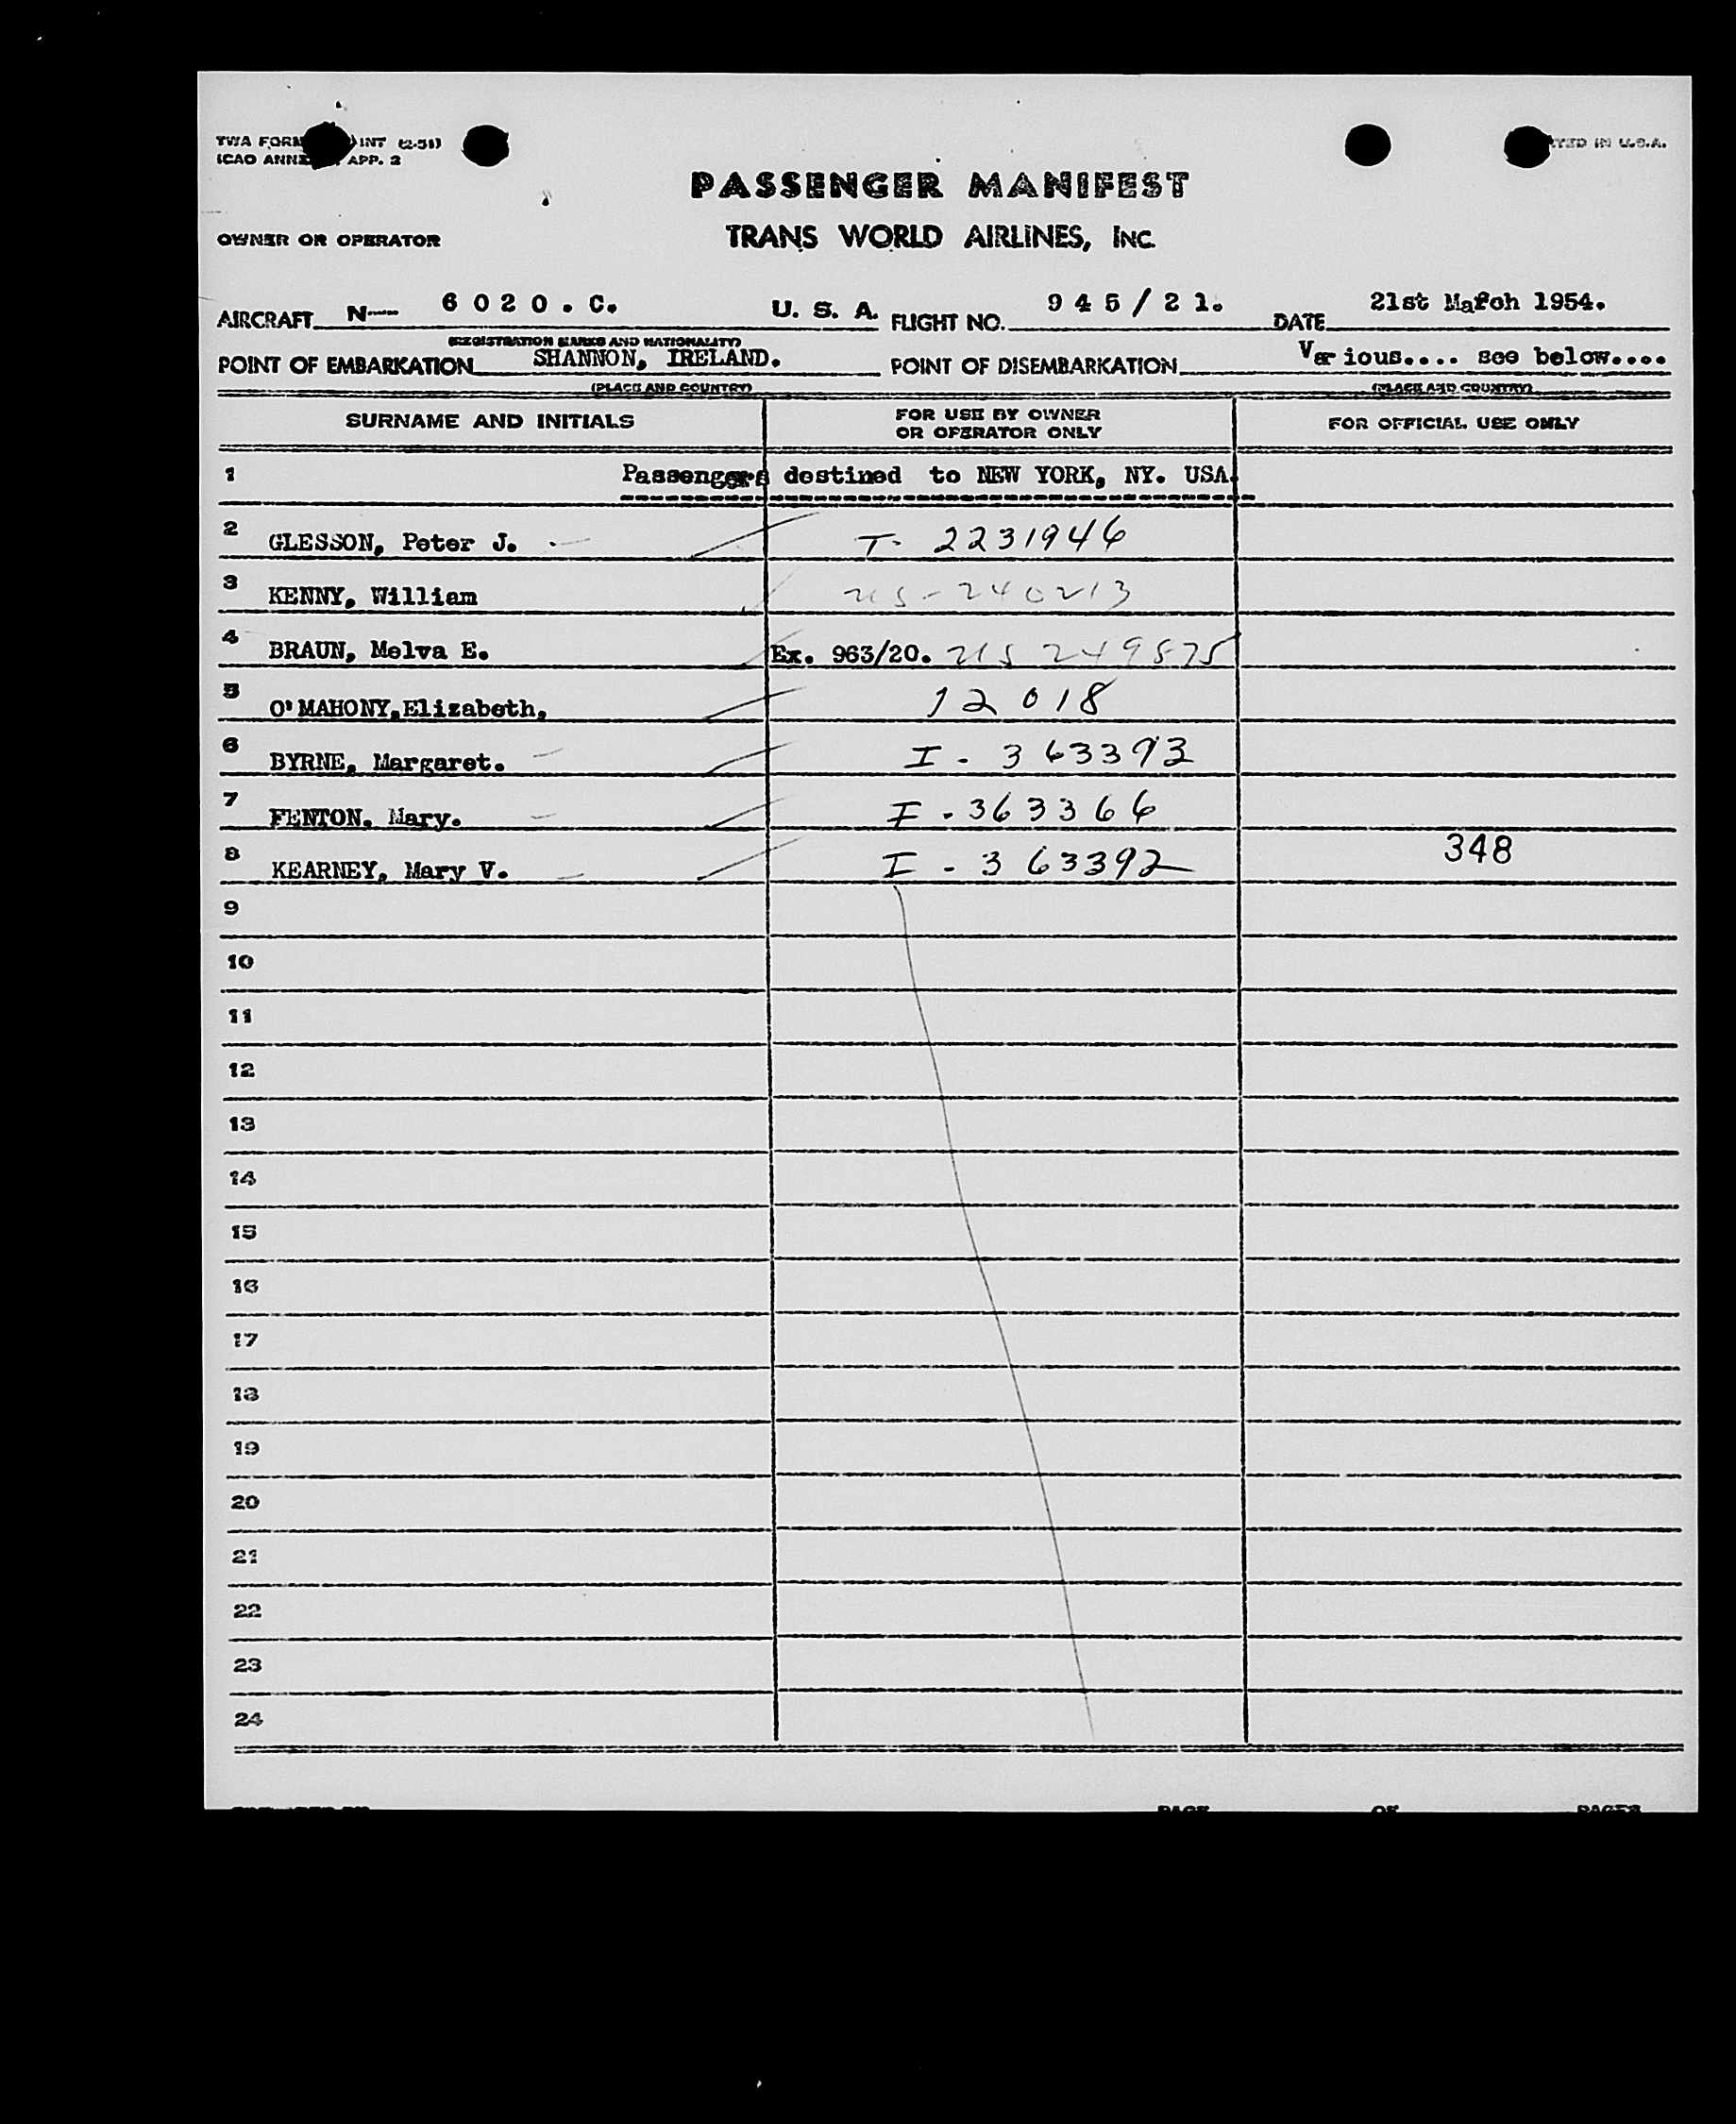 TWA FORM INT (2-51)
ICAO ANNEX APP. 2
TED IN U.S.A.
PASSENGER MANIFEST
OWNER OR OPERATOR
TRANS WORLD AIRLINES, INC.
AIRCRAFT N-- 6 0 2 0 . C. U. S. A. FLIGHT NO. 9 4 5 / 2 1. DATE 21st March 1954.
(REGISTRATION MARKS AND NATIONALITY)
POINT OF EMBARKATION SHANNON, IRELAND. POINT OF DISEMBARKATION Various.... see below....
(PLACE AND COUNTRY) (PLACE AND COUNTRY)
SURNAME AND INITIALS
FOR USE BY OWNER
OR OPERATOR ONLY
FOR OFFICIAL USE ONLY
1 Passengers destined to NEW YORK, NY. USA.
2 GLESSON, Peter J. T- 2231946
3 KENNY, William US-240213
4 BRAUN, Melva E. Ex. 963/20. US 249575
5 O'MAHONY,Elizabeth, 12018
6 BYRNE, Margaret. I - 363393
7 FENTON, Mary. I - 363366
8 KEARNEY, Mary V. I - 363392 348
9
10
11
12
13
14
15
16
17
18
19
20
21
22
23
24
PAGE OF PAGES